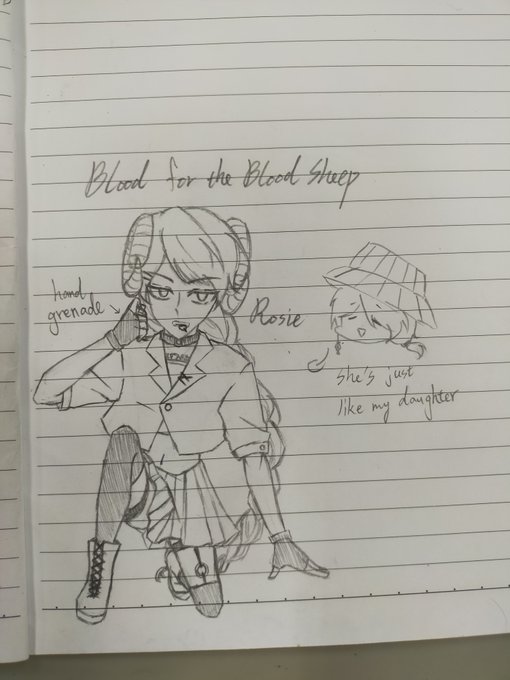 Blood for the Blood Sheep
hand
grenade
Rosie
she's just
like my daughter